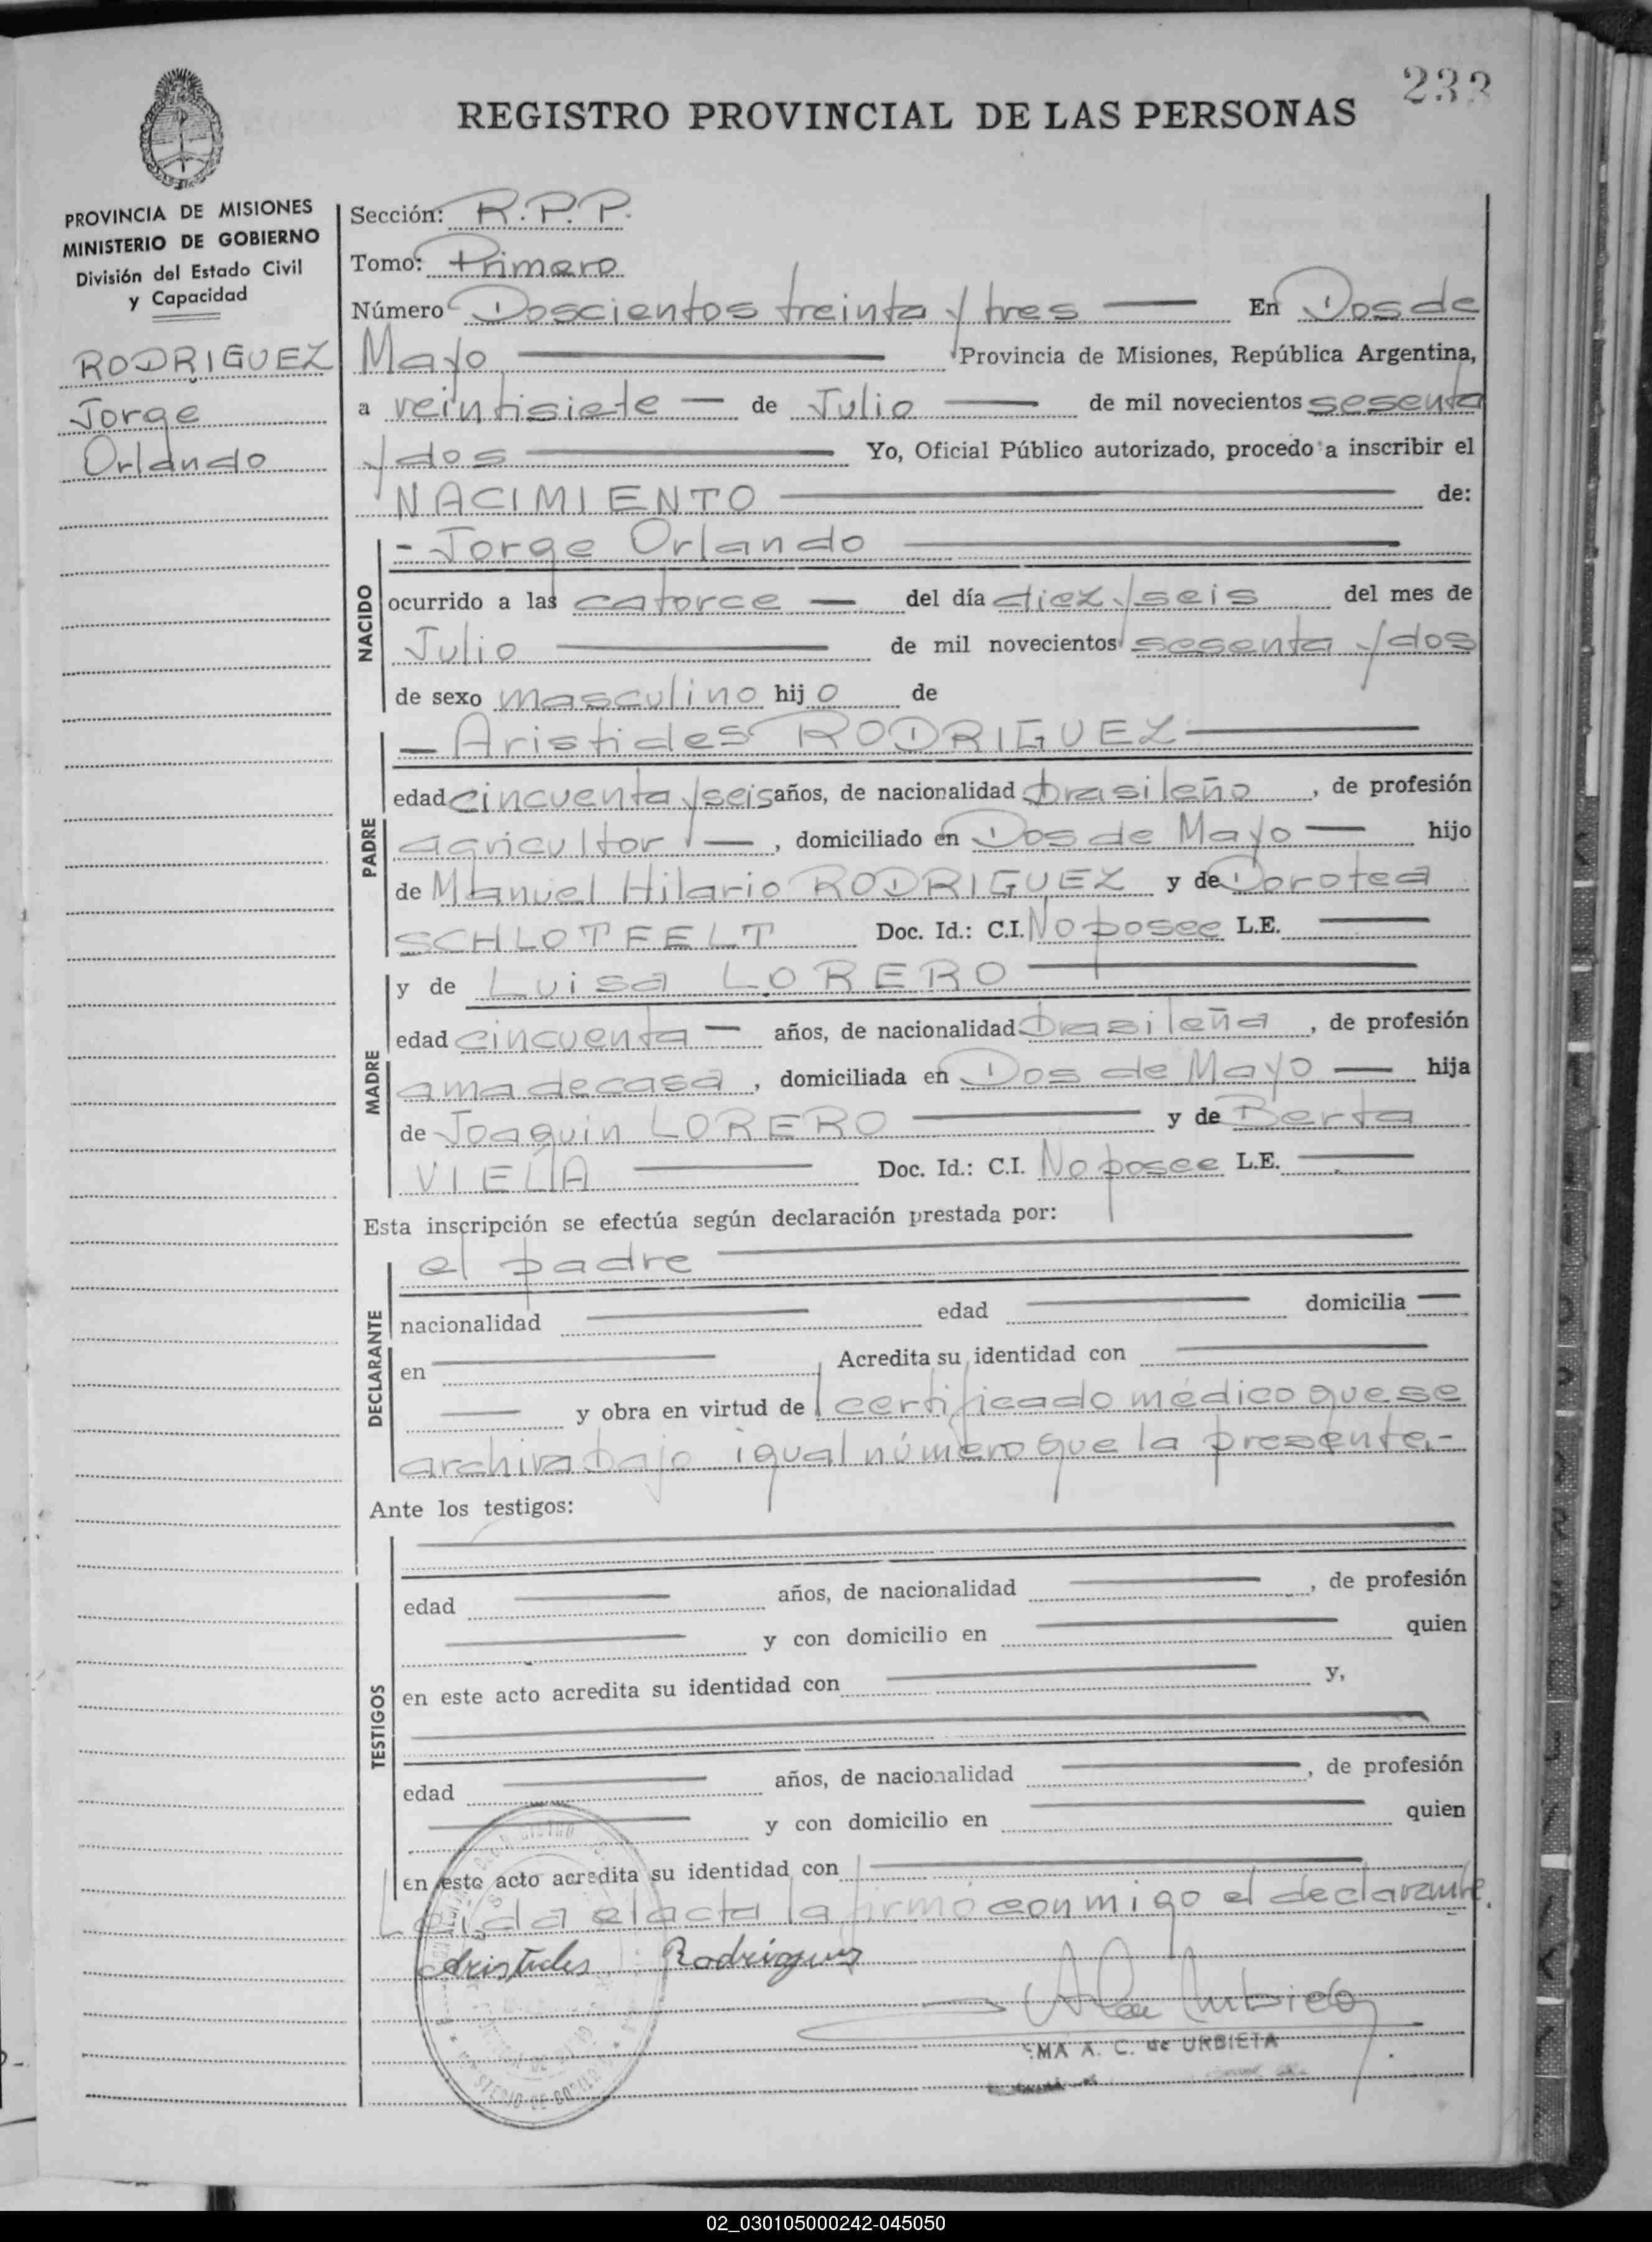 233
REGISTRO PROVINCIAL DE LAS PERSONAS
PROVINCIA DE MISIONES
MINISTERIO DE GOBIERNO
División del Estado Civil
y Capacidad
RODRIGUEZ
Jorge
Orlando
Sección: R.P.P.
Tomo: Primero
Número Doscientos treinta y tres En Dos de
Mayo Provincia de Misiones, República Argentina,
a veintisiete de Julio de mil novecientos sesenta
y dos Yo, Oficial Público autorizado, procedo a inscribir el
NACIMIENTO de:
NACIDO
- Jorge Orlando
ocurrido a las catorce del día diez y seis del mes de
Julio de mil novecientos sesenta y dos
de sexo masculino hijo de
PADRE
Aristides RODRIGUEZ
edad cincuenta y seis años, de nacionalidad brasileño, de profesión
agricultor, domiciliado en Dos de Mayo hijo
de Manuel Hilario RODRIGUEZ y de Dorotea
SCHLOTFELT Doc. Id.: C.I. No posee L.E.
MADRE
y de Luisa LORERO
edad cincuenta años, de nacionalidad brasileña, de profesión
ama de casa, domiciliada en Dos de Mayo hija
de Joaquin LORERO y de Berta
VIELIA Doc. Id.: C.I. No posee L.E.
Esta inscripción se efectúa según declaración prestada por:
DECLARANTE
el padre
nacionalidad edad domicilia
en Acredita su identidad con
y obra en virtud del certificado médico que se
archiva bajo igual número que la presente.-
Ante los testigos:
TESTIGOS
edad años, de nacionalidad , de profesión
y con domicilio en quien
en este acto acredita su identidad con y,
edad años, de nacionalidad , de profesión
y con domicilio en quien
en este acto acredita su identidad con
Leida el acta la firmó conmigo el declarante.
Aristides Rodriguez
MA A. C. de URBIETA
02_030105000242-045050